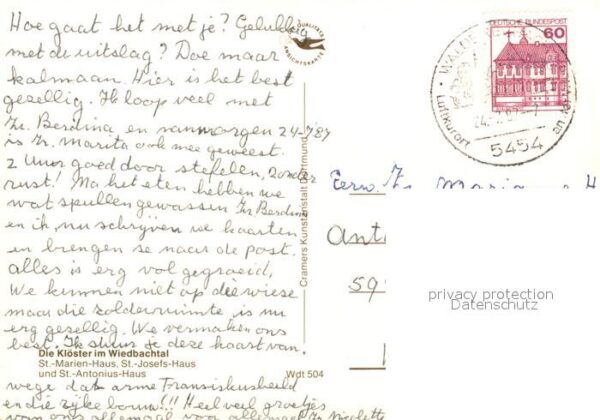 Hoe gaat het met je? Gelukkig
met de uitslag? Doe maar
kalmaan. Hier is het best
gezellig. Ik loop veel met
Zr. Berdina en vanmorgen 24-7'87
is Zr. Marita ook mee geweest.
2 Uur goed door stekelen, zonder
rust! Na het eten hebben we
wat spullen gewassen Zr Berdina
en ik nu schrijven we kaarten
en brengen ze naar de post.
alles is erg vol gegroeid,
We kunnen niet op die wiese
maar die zolderruimte is nu
erg gezellig. We vermaken ons
best. Ik stuur je deze kaart van.
Die Klöster im Wiedbachtal
St.-Marien-Haus, St.-Josefs-Haus
und St.-Antonius-Haus
Wdt 504
wege dat arme Transiskusbeeld
en die rijke bouw!!! Heel veel groetjes
van ons allemaal voor allemaal Zr Nicolette
QUALITÄTS
ANSICHTSKARTE
Cramers Kunstanstalt Dortmund
DEUTSCHE BUNDESPOST
60
Luftkurort
5454
Eerw. Zr
Anto
59
privacy protection
Datenschutz